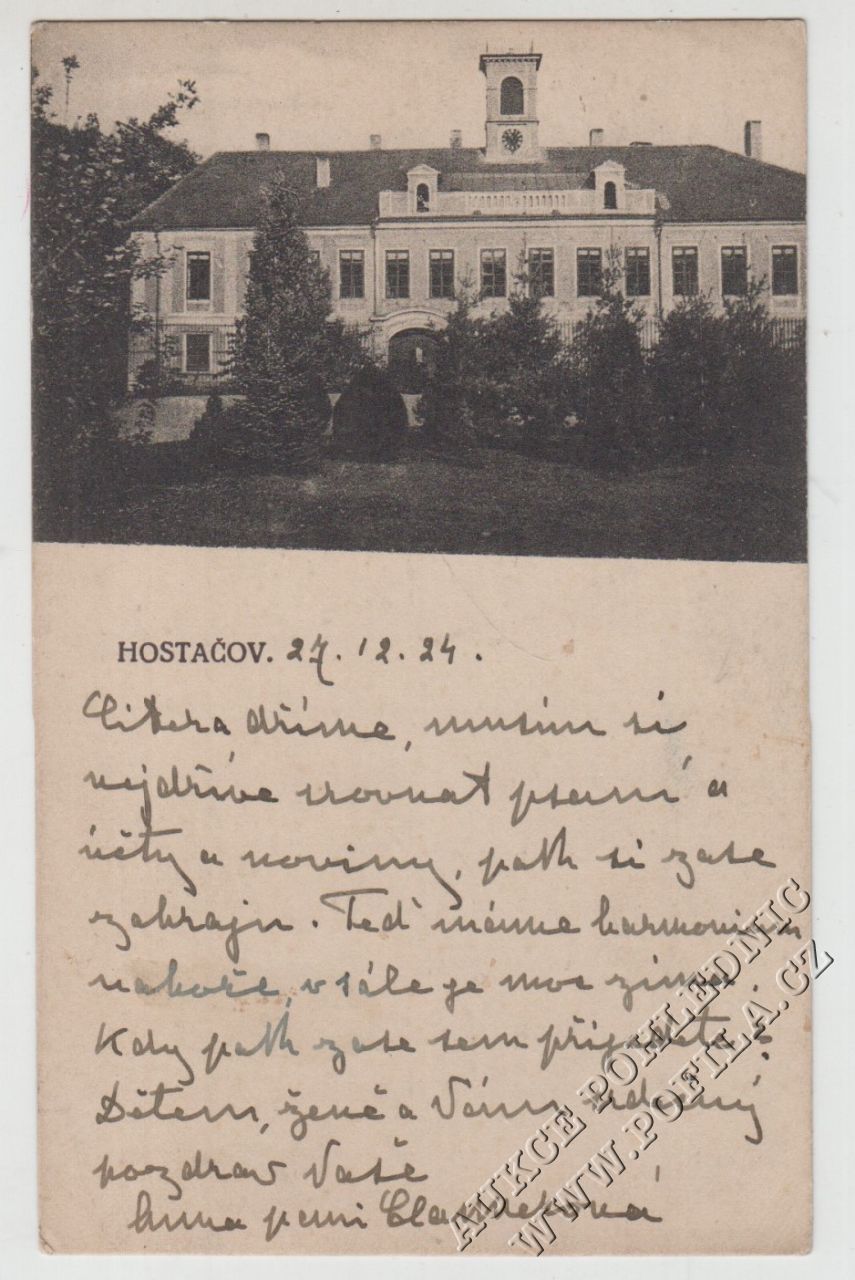 HOSTAČOV. 27. 12. 24.
Citera dříme, musím si
nejdříve srovnat psaní a
účty a noviny, pak si zase
zahraju. Teď máme harmonium
nahoře, v sále je moc zima.
Kdy pak zase sem přijedete?
Dětem, ženě a Vám srdečný
pozdrav Vaše
Anna
AUKCE POHLEDNIC
WWW.POFILA.CZ